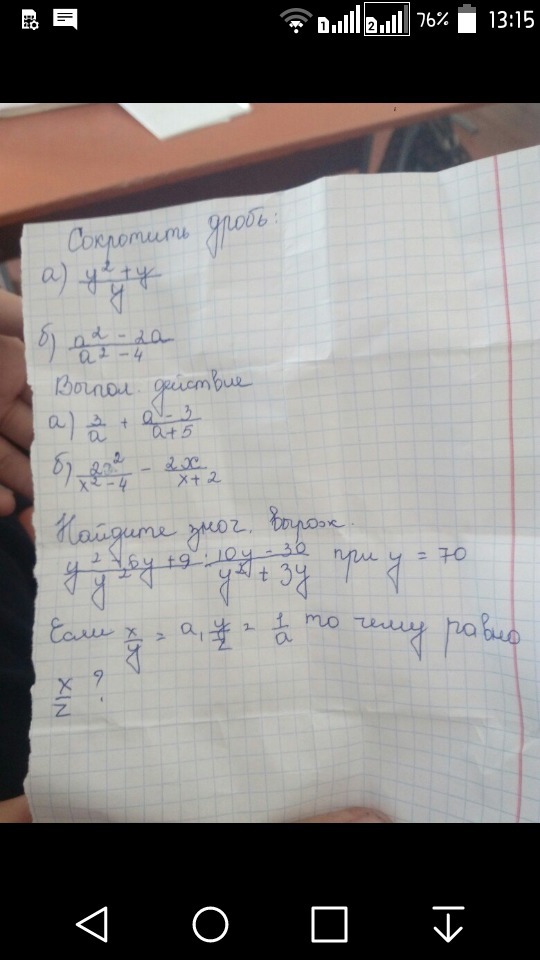 1 2 76% 13:15
Сокротить дробь:
а) y² + y / y
б) a² - 2a / a² - 4
Выпол. действие
а) 3/a + a - 3 / a + 5
б) 2x² / x² - 4 - 2x / x + 2
Найдите знач. выраж.
y² - 6y + 9 / y² : 10y - 30 / y² + 3y при y = 70
Если x/y = a, y/z = 1/a то чему равно
x/z ?